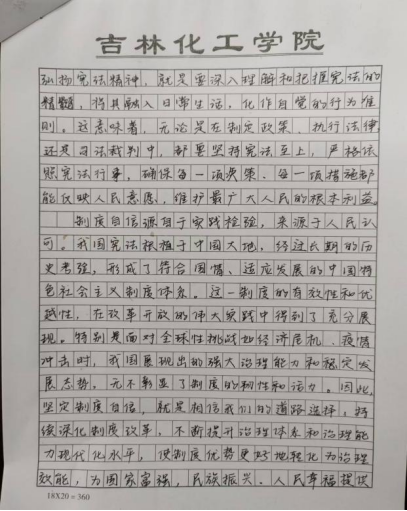 吉林化工学院
弘扬宪法精神，就是要深入理解和把握宪法的
精髓，将其融入日常生活，化作自觉的行为准
则。这意味着，无论是在制定政策、执行法律
还是司法裁判中，都要坚持宪法至上，严格依
照宪法行事，确保每一项决策、每一项措施都
能反映人民意愿，维护最广大人民的根本利益。
制度自信源自于实践检验，来源于人民认
可。我国宪法根植于中国大地，经过长期的历
史考验，形成了符合国情、适应发展的中国特
色社会主义制度体系。这一制度的有效性和优
越性，在改革开放的伟大实践中得到了充分展
现。特别是面对全球性挑战如经济危机、疫情
冲击时，我国展现出的强大治理能力和稳定发
展态势，无不彰显了制度的韧性和活力。因此，
坚定制度自信，就是相信我们的道路选择，持
续深化制度改革，不断提升治理体系和治理能
力现代化水平，使制度优势更好地转化为治理
效能，为国家富强、民族振兴、人民幸福提供
18X20=360